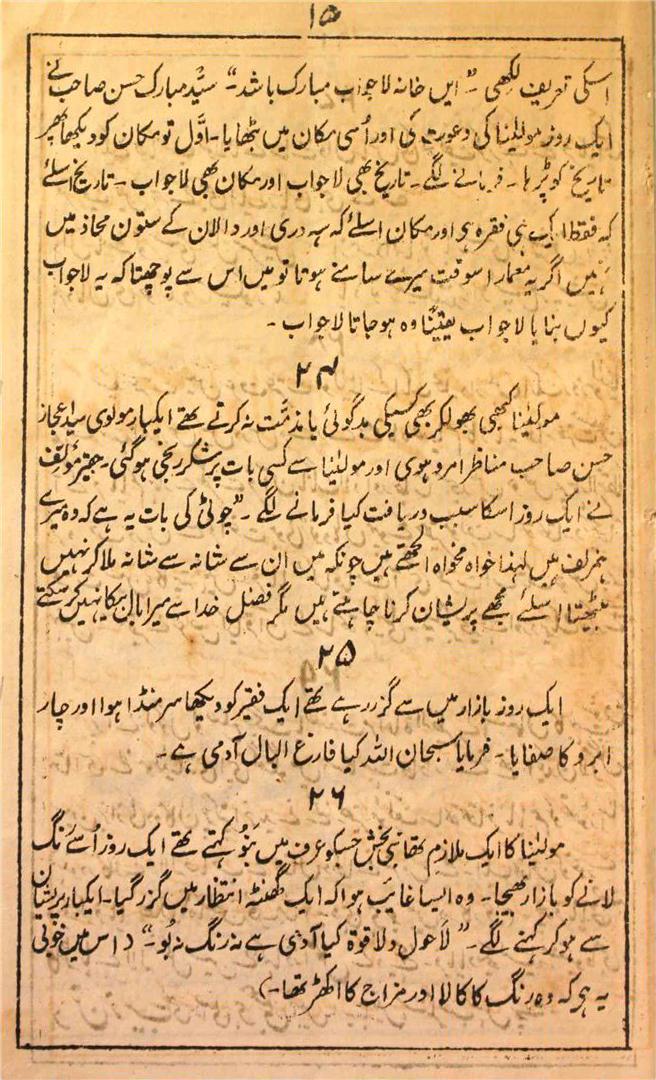 ۱۵
اسکی تعریف لکھی ۔ ”ایں خانہ لاجواب مبارک باشد“ سیّد مبارک حسن صاحب نے
ایک روز مولٰینا کی دعوت کی اور اُسی مکان میں بٹھایا۔ اوّل تو مکان کو دیکھا پھر
تاریخ کو پڑہا۔ فرمانے لگے۔ تاریخ بھی لاجواب اور مکان بھی لاجواب۔ تاریخ اسلئے
کہ فقط ایک ہی فقرہ ہی اور مکان اسلئے کہ سہ دری اور دالان کے ستون محاذ میں
نہیں اگر یہ معمار اسوقت میرے سامنے ہوتا تو میں اس سے پوچھتا کہ یہ لاجواب
کیوں بنایا لاجواب یقیناً وہ ہوجاتا لاجواب ۔
۲۴
مولٰینا کبھی بھولکر بھی کسیکی بدگوئی یا مذمّت نہ کرتے تھے ایکبار مولوی سید اعجاز
حسن صاحب مناظر امروہوی اور مولٰینا سے کسی بات پر شکر رنجی ہوگئی۔ حقیر مؤلف
نے ایک روز اسکا سبب دریافت کیا فرمانے لگے ۔ ”چوٹی کی بات یہ ہے کہ وہ میرے
ہمزلف ہیں لہذا خواہ مخواہ الجھتے ہیں چونکہ میں ان سے شانہ سے شانہ ملا کر نہیں
بیٹھتا اسلئے مجھے پریشان کرنا چاہتے ہیں مگر فضل خدا سے میرا بال بیکا نہیں کرسکتے
۲۵
ایک روز بازار میں سے گزر رہے تھے ایک فقیر کو دیکھا سر منڈا ہوا اور چار
ابرو کا صفایا۔ فرمایا سبحان اللہ کیا فارغ البال آدمی ہے ۔
۲۶
مولٰینا کا ایک ملازم تھا نبی بخش جسکو عرف میں بَنُو کہتے تھے ایک روز اُسے رنگ
لانے کو بازار بھیجا۔ وہ ایسا غایب ہوا کہ ایک گھنٹہ انتظار میں گزر گیا۔ ایکبار پریشان
سے ہوکر کہنے لگے۔ ”لاحول ولا قوۃ کیا آدمی ہے نہ رنگ نہ بُو۔“ (اس میں خوبی
یہ ہی کہ وہ رنگ کا کالا اور مزاج کا اکھڑ تھا۔)